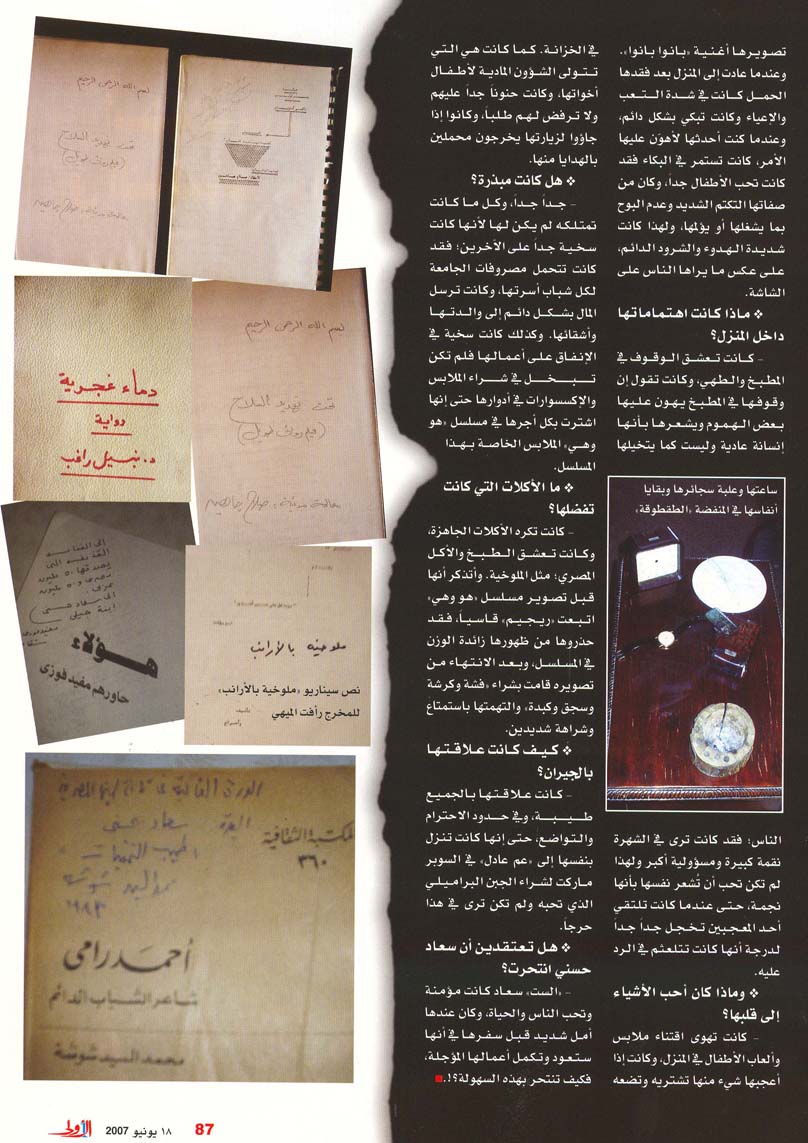 تصويرها أغنية «بانوا بانوا».
وعندما عادت إلى المنزل بعد فقدها
الحمل كانت في شدة التعب
والإعياء وكانت تبكي بشكل دائم،
وعندما كنت أحدثها لأهوّن عليها
الأمر، كانت تستمر في البكاء فقد
كانت تحب الأطفال جداً، وكان من
صفاتها التكتم الشديد وعدم البوح
بما يشغلها أو يؤلمها، ولهذا كانت
شديدة الهدوء والشرود الدائم،
على عكس ما يراها الناس على
الشاشة.
❖ ماذا كانت اهتماماتها
داخل المنزل؟
- كانت تعشق الوقوف في
المطبخ والطهي، وكانت تقول إن
وقوفها في المطبخ يهون عليها
بعض الهموم ويشعرها بأنها
إنسانة عادية وليست كما يتخيلها
ساعتها وعلبة سجائرها وبقايا
أنفاسها في المنفضة «الطقطوقة»
الناس؛ فقد كانت ترى في الشهرة
نقمة كبيرة ومسؤولية أكبر ولهذا
لم تكن تحب أن تُشعر نفسها بأنها
نجمة، حتى عندما كانت تلتقي
أحد المعجبين تخجل جداً جداً
لدرجة أنها كانت تتلعثم في الرد
عليه.
❖ وماذا كان أحب الأشياء
إلى قلبها؟
- كانت تهوى اقتناء ملابس
وألعاب الأطفال في المنزل، وكانت إذا
أعجبها شيء منها تشتريه وتضعه
في الخزانة. كما كانت هي التي
تتولى الشؤون المادية لأطفال
أخواتها، وكانت حنوناً جداً عليهم
ولا ترفض لهم طلباً، وكانوا إذا
جاؤوا لزيارتها يخرجون محملين
بالهدايا منها.
❖ هل كانت مبذرة؟
- جداً جداً، وكل ما كانت
تمتلكه لم يكن لها لأنها كانت
سخية جداً على الآخرين؛ فقد
كانت تتحمل مصروفات الجامعة
لكل شباب أسرتها، وكانت ترسل
المال بشكل دائم إلى والدتها
وأشقائها. وكذلك كانت سخية في
الإنفاق على أعمالها فلم تكن
تبخل في شراء الملابس
والإكسسوارات في أدوارها حتى إنها
اشترت بكل أجرها في مسلسل «هو
وهي» الملابس الخاصة بهذا
المسلسل.
❖ ما الأكلات التي كانت
تفضلها؟
- كانت تكره الأكلات الجاهزة،
وكانت تعشق الطبخ والأكل
المصري؛ مثل الملوخية. وأتذكر أنها
قبل تصوير مسلسل «هو وهي»
اتبعت «ريجيم» قاسياً، فقد
حذروها من ظهورها زائدة الوزن
في المسلسل، وبعد الانتهاء من
تصويره قامت بشراء «فشة وكرشة
وسجق وكبدة، والتهمتها باستمتاع
وشراهة شديدين.
❖ كيف كانت علاقتها
بالجيران؟
- كانت علاقتها بالجميع
طيبة، وفي حدود الاحترام
والتواضع، حتى إنها كانت تنزل
بنفسها إلى «عم عادل» في السوبر
ماركت لشراء الجبن البراميلي
الذي تحبه ولم تكن ترى في هذا
حرجاً.
❖ هل تعتقدين أن سعاد
حسني انتحرت؟
- «الست» سعاد كانت مؤمنة
وتحب الناس والحياة، وكان عندها
أمل شديد قبل سفرها في أنها
ستعود وتكمل أعمالها المؤجلة،
فكيف تنتحر بهذه السهولة؟!.
بسم الله الرحمن الرحيم
تحت تهديد السلاح
(فيلم روائى طويل)
بسم الله الرحمن الرحيم
تحت تهديد السلاح
(فيلم روائى طويل)
دماء غجرية
رواية
د. نبيل راغب
هؤلاء
حاورهم مفيد فوزى
ملوخيه بالأرانب
نص سيناريو «ملوخية بالأرانب»
للمخرج رأفت الميهي
المكتبة الثقافية
٣٦٠
١٩٨٣
أحمد رامى
شاعر الشباب الدائم
محمد السيد شوشة
87
١٨ يونيو 2007
الأولى